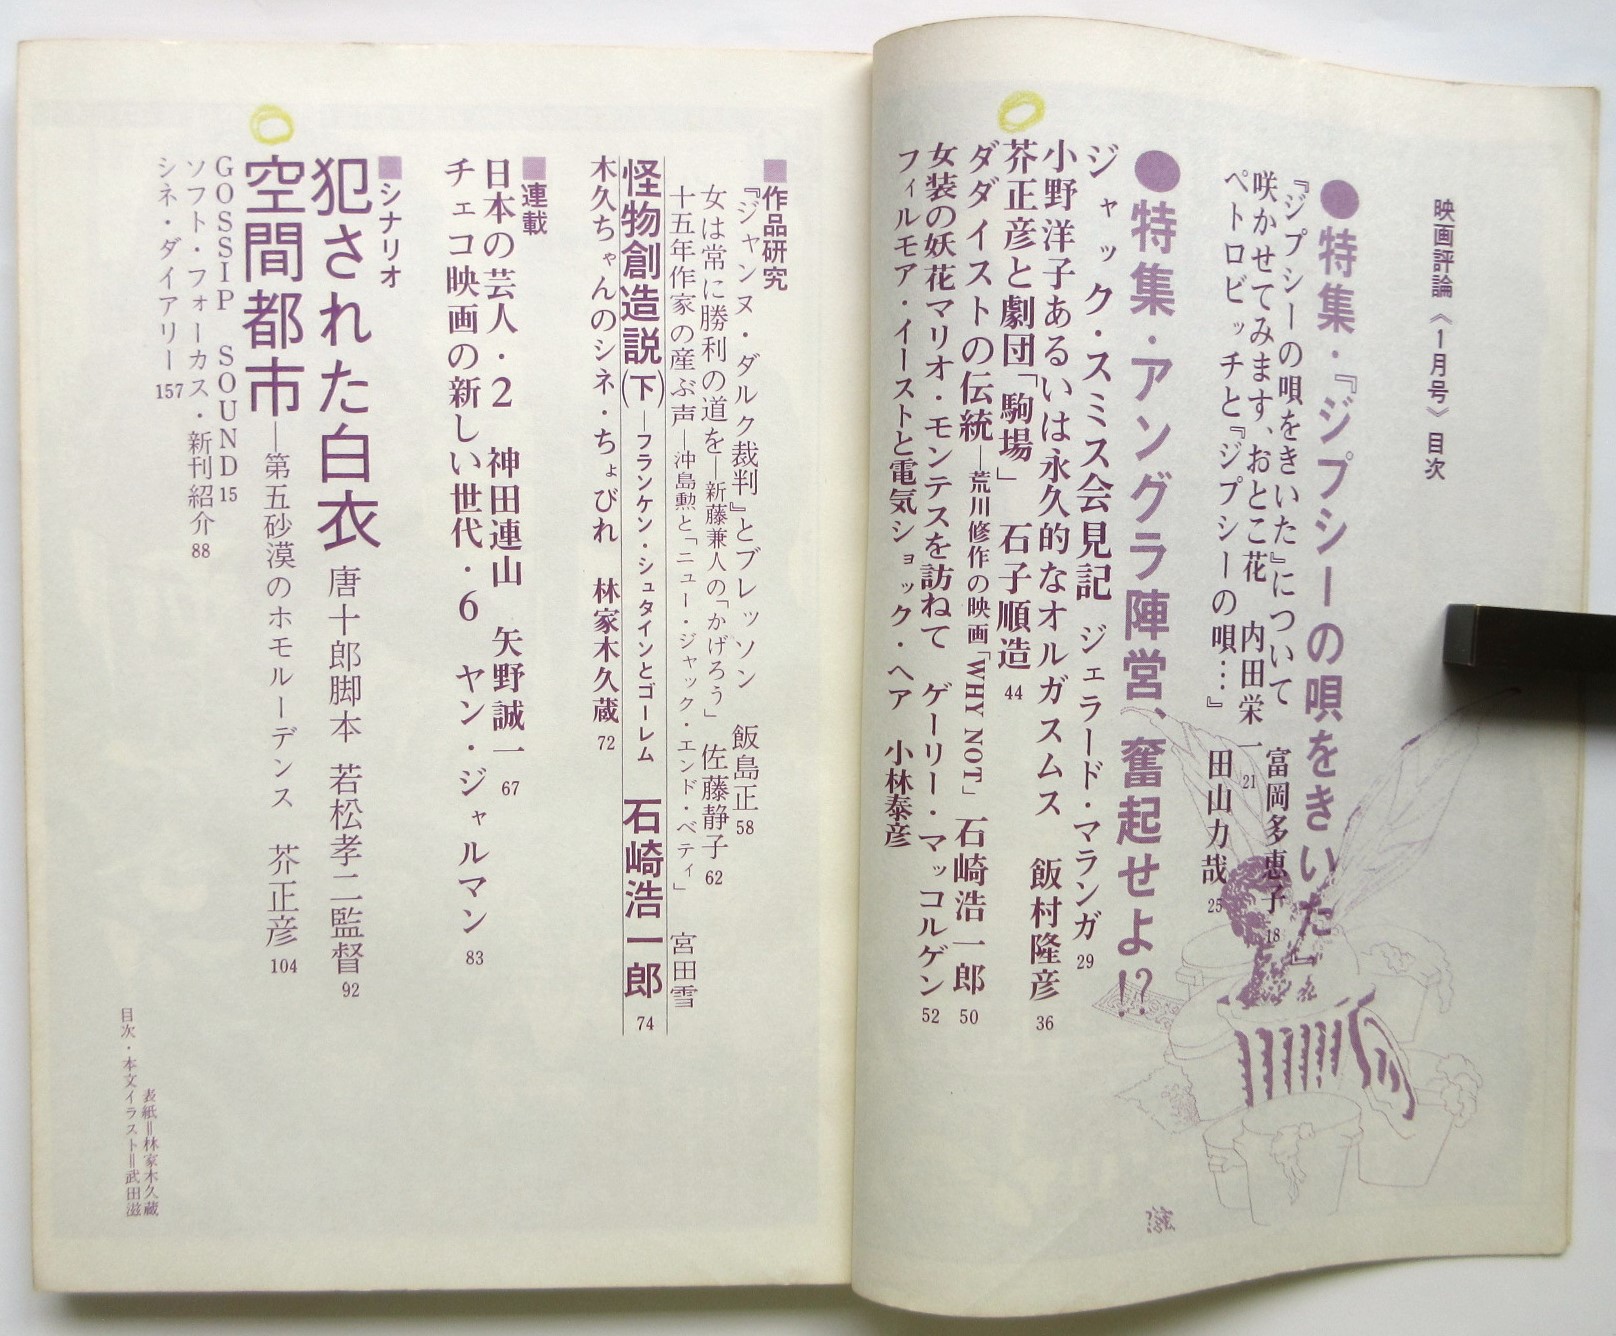 映画評論《1月号》目次
●特集・『ジプシーの唄をきいた』
『ジプシーの唄をきいた』について 富岡多恵子 18
咲かせてみます、おとこ花 内田栄一 21
ペトロビッチと『ジプシーの唄…』 田山力哉 25
●特集・アングラ陣営、奮起せよ!?
ジャック・スミス会見記 ジェラード・マランガ 29
小野洋子あるいは永久的なオルガスムス 飯村隆彦 36
芥正彦と劇団「駒場」 石子順造 44
ダダイストの伝統—荒川修作の映画「WHY NOT」 石崎浩一郎 50
女装の妖花マリオ・モンテスを訪ねて ゲーリー・マッコルゲン 52
フィルモア・イーストと電気ショック・ヘア 小林泰彦
■作品研究
『ジャンヌ・ダルク裁判』とブレッソン 飯島正 58
女は常に勝利の道を—新藤兼人の「かげろう」 佐藤静子 62
十五年作家の産ぶ声—沖島勲と「ニュー・ジャック・エンド・ベティ」 宮田雪
怪物創造説(下)—フランケン・シュタインとゴーレム 石崎浩一郎 74
木久ちゃんのシネ・ちょびれ 林家木久蔵 72
■連載
日本の芸人・2 神田連山 矢野誠一 67
チェコ映画の新しい世代・6 ヤン・ジャルマン 83
■シナリオ
犯された白衣 唐十郎脚本 若松孝二監督 92
空間都市—第五砂漠のホモルーデンス 芥正彦 104
GOSSIP SOUND 15
ソフト・フォーカス・新刊紹介 88
シネ・ダイアリー 157
表紙＝林家木久蔵
目次・本文イラスト＝武田滋